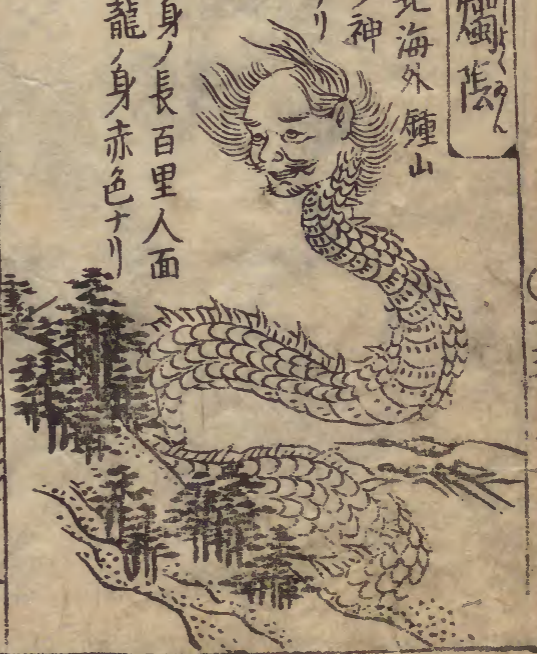 燭陰
よくゐん
北海外鍾山
ノ神
リ
身ノ長百里人面
龍ノ身赤色ナリ